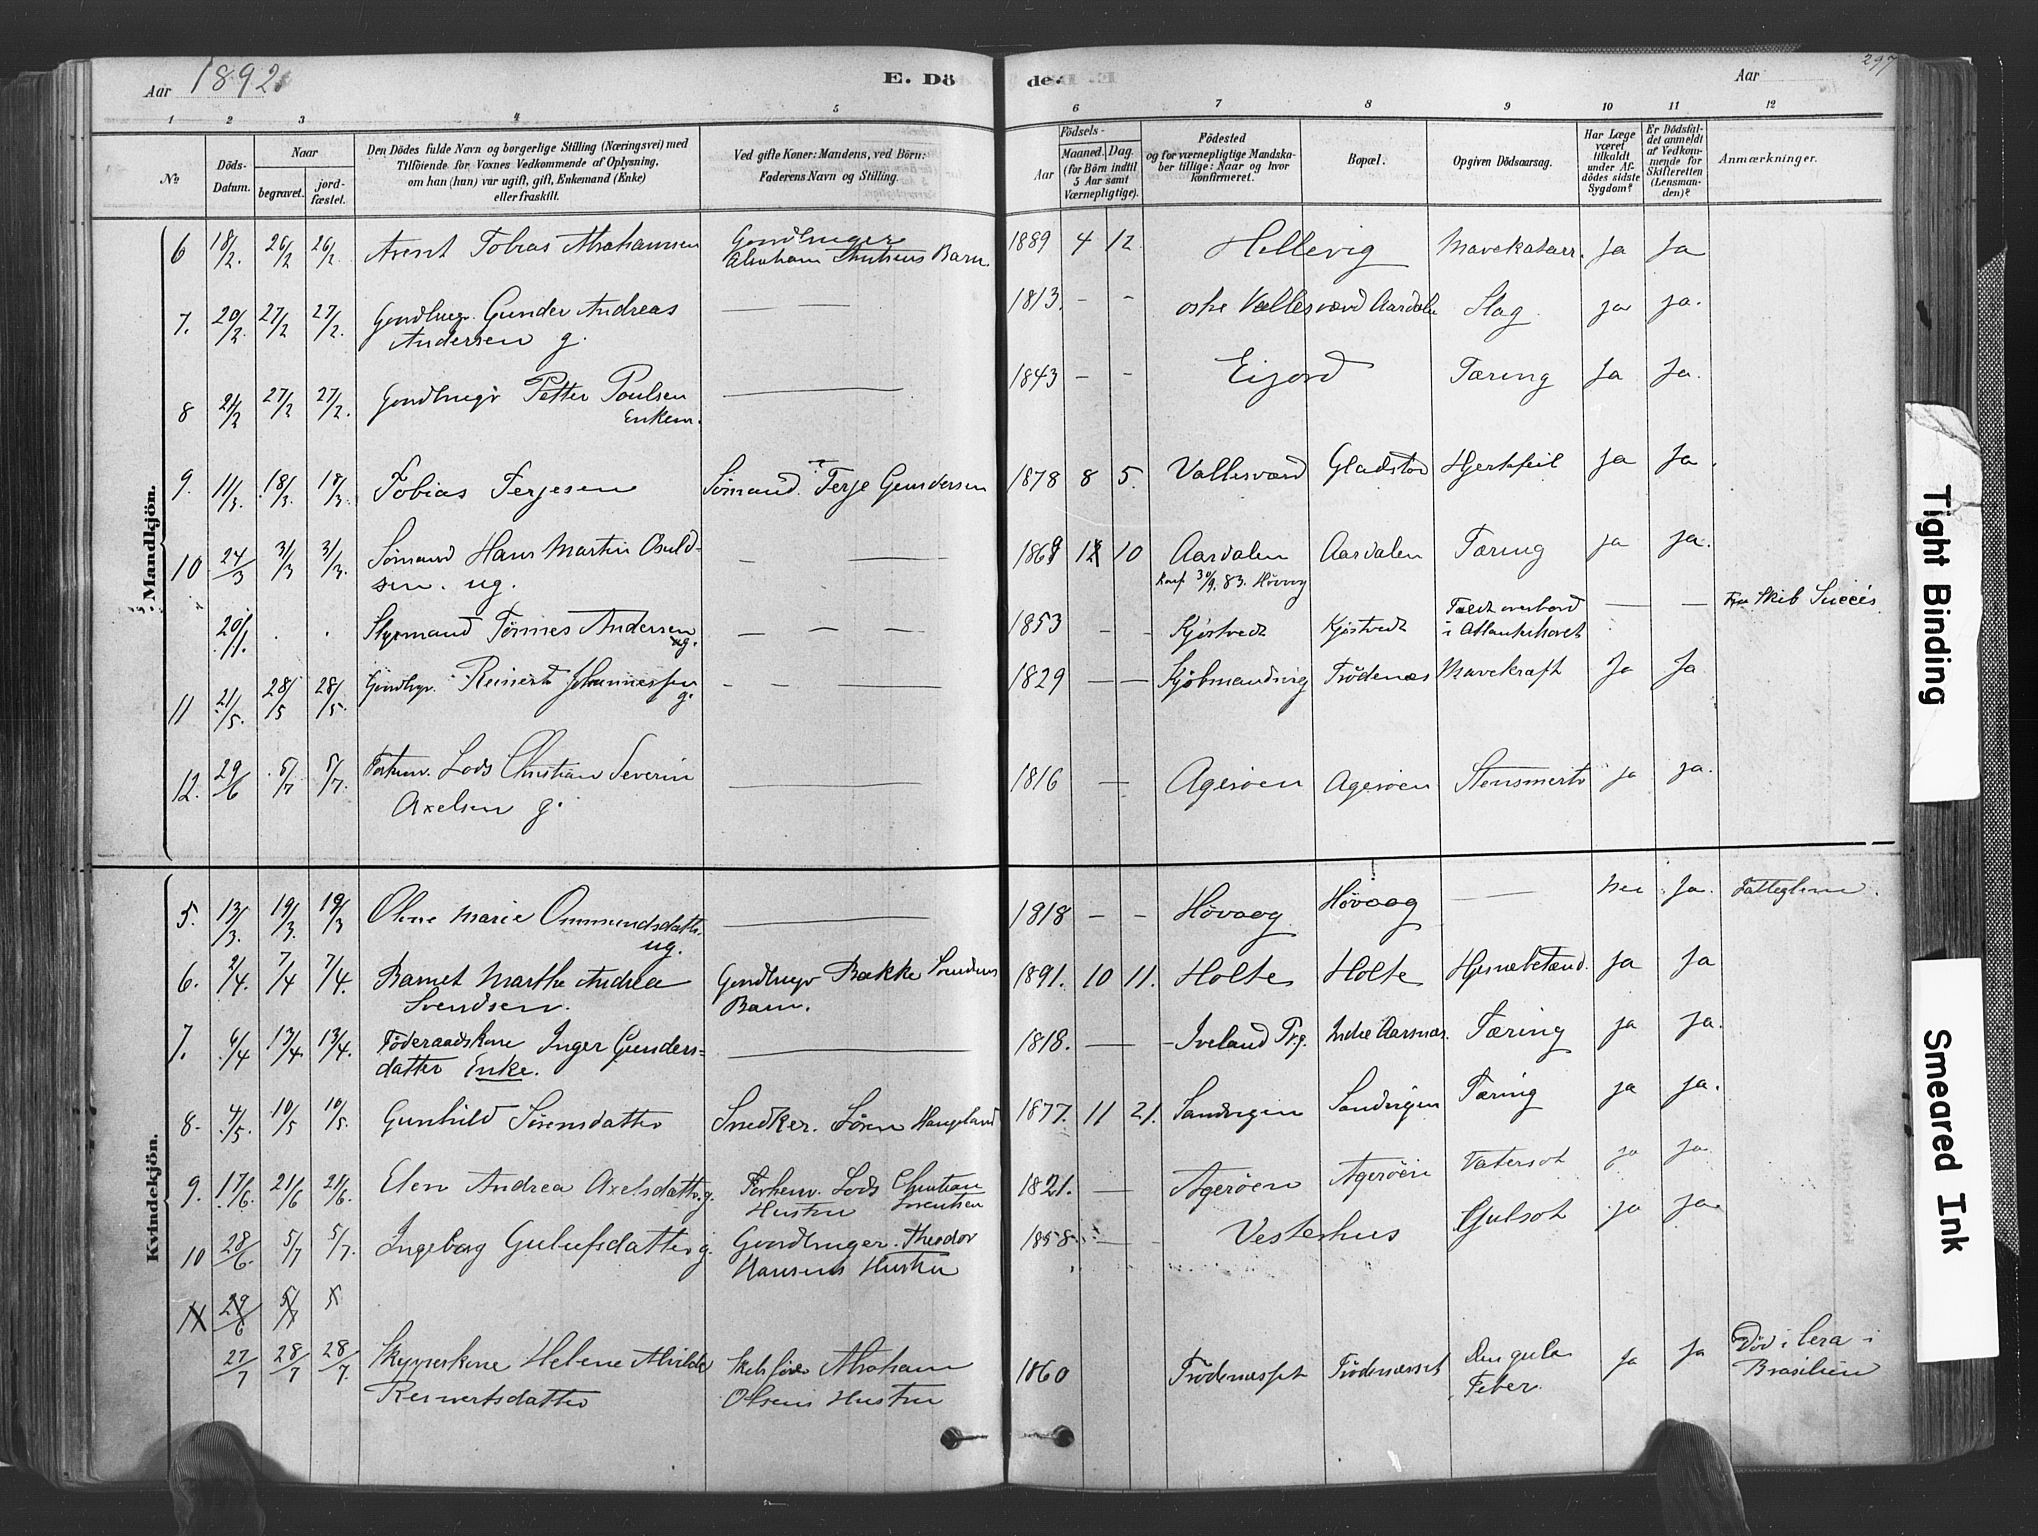 Aar 1892. E. Döde. Aar 297
1 2 3 4 5 6 7 8 9 10 11 12
№
Döds-Datum.
Naar
begravet. jord-fæstet.
Den Dödes fulde Navn og borgerlige Stilling (Næringsvei) med
Tilföiende for Voxnes Vedkommende af Oplysning,
om han (hun) var ugift, gift, Enkemand (Enke)
eller fraskilt.
Ved gifte Koner: Mandens, ved Börn:
Faderens Navn og Stilling.
Födsels-
Aar
Maaned. Dag.
(for Börn indtil
5 Aar samt
Værnepligtige).
Födested
og for værnepligtige Mandska-
ber tillige: Naar og hvor
konfirmeret.
Bopæl.
Opgiven Dödsaarsag.
Har Læge
været
tilkaldt
under Af-
dödes sidste
Sygdom?
Er Dödsfal-
det anmeldt
af Vedkom-
mende for
Skifteretten
(Lensman-
den)?
Anmærkninger.
Mandkjön.
6 18/2. 26/2 26/2. Arent Tobias Abrahamsen Gaardbruger 1889 4 12. Hellevig Mavekatarr. Ja Ja
Abraham Knutsens Barn.
7. 20/2 27/2 27/2. Gaardbrugr. Gunder Andreas — 1813. - - Vallesværd Aardalen Slag. ja ja.
Andersen g.
8 21/2 27/2 27/2. Gaardbrugr Petter Poulsen — 1843 - - Eijord Tæring Ja Ja.
Enkem.
9. 11/3. 18/3. 18/3. Tobias Terjesen Sömand. Terje Gundersen 1878 8 5. Vallesværd Gladstad Hjertfeil Ja Ja.
10 24/3 3/3 3/3. Sömand Hans Martin Osuld- — 1869 12 10 Aardalen Aardalen Tæring ja Ja.
sen. ug. Konf 30/9. 83. Høvaag
20/1. . . Styrmand Tönnes Andersen — — 1853 - - Kjöstvedt Kjöstvedt Faldt overbord — — Skib Succés.
ug. i Atlanterhavet
11 21/5. 28/5 28/5. Gaardbgr. Reinert Johannessen - - - 1829 — — Kjöbmandsvig Trödenæs Mavekræft Ja Ja.
g.
12. 29/6 5/7 5/7. Forhenv. Lods Christian Severin — 1816 — Ageröen Ageröen Stensmerte ja ja.
Axelsen g.
Kvindekjön.
5. 13/3. 19/3. 19/3 Olene Marie Ommundsdatter. — 1818 - - Hövaag Hövaag — Nei Ja. Fattiglem.
ug.
6. 2/4. 7/4 7/4. Barnet Marthe Andrea Gaardbrugr Bække Svendsens 1891. 10 11. Holte Holte Hjernebetænd. Ja Ja
Svendsen. Barn.
7. 6/4 13/4. 13/4. Föderaadskone Inger Gunders- — 1818. — — Iveland Prg. Indre Aarsnæs. Tæring ja Ja.
datter Enke.
8. 4/5. 10/5 10/5. Gunhild Sörensdatter Snedker. Sören Haugeland 1877. 11 21. Sandvigen Sandvigen Tæring ja ja.
9. 17/6. 21/6 21/6. Elen Andrea Axelsdatter. g. Forhenv. Lods Christian 1821. — Ageröen Ageröen Vatersot ja ja.
Hustru Sorentsen
10 28/6. 5/7 5/7. Ingeborg Gulufsdatter g. Gaardbruger. Theodor 1858. — Vesterhus Gulsot ja Ja.
Hansens Hustru
11 29/6 5/7 5
27/7 28/7 28/7. Skipperskone Helene Alvilde Skibsförer Abraham 1860 Trödenæsset Trödenæsset Den gule Ja Ja Död i Cera i
Reinertsdatter Olsens Hustru Feber. Brasilien
Tight Binding
Smeared Ink